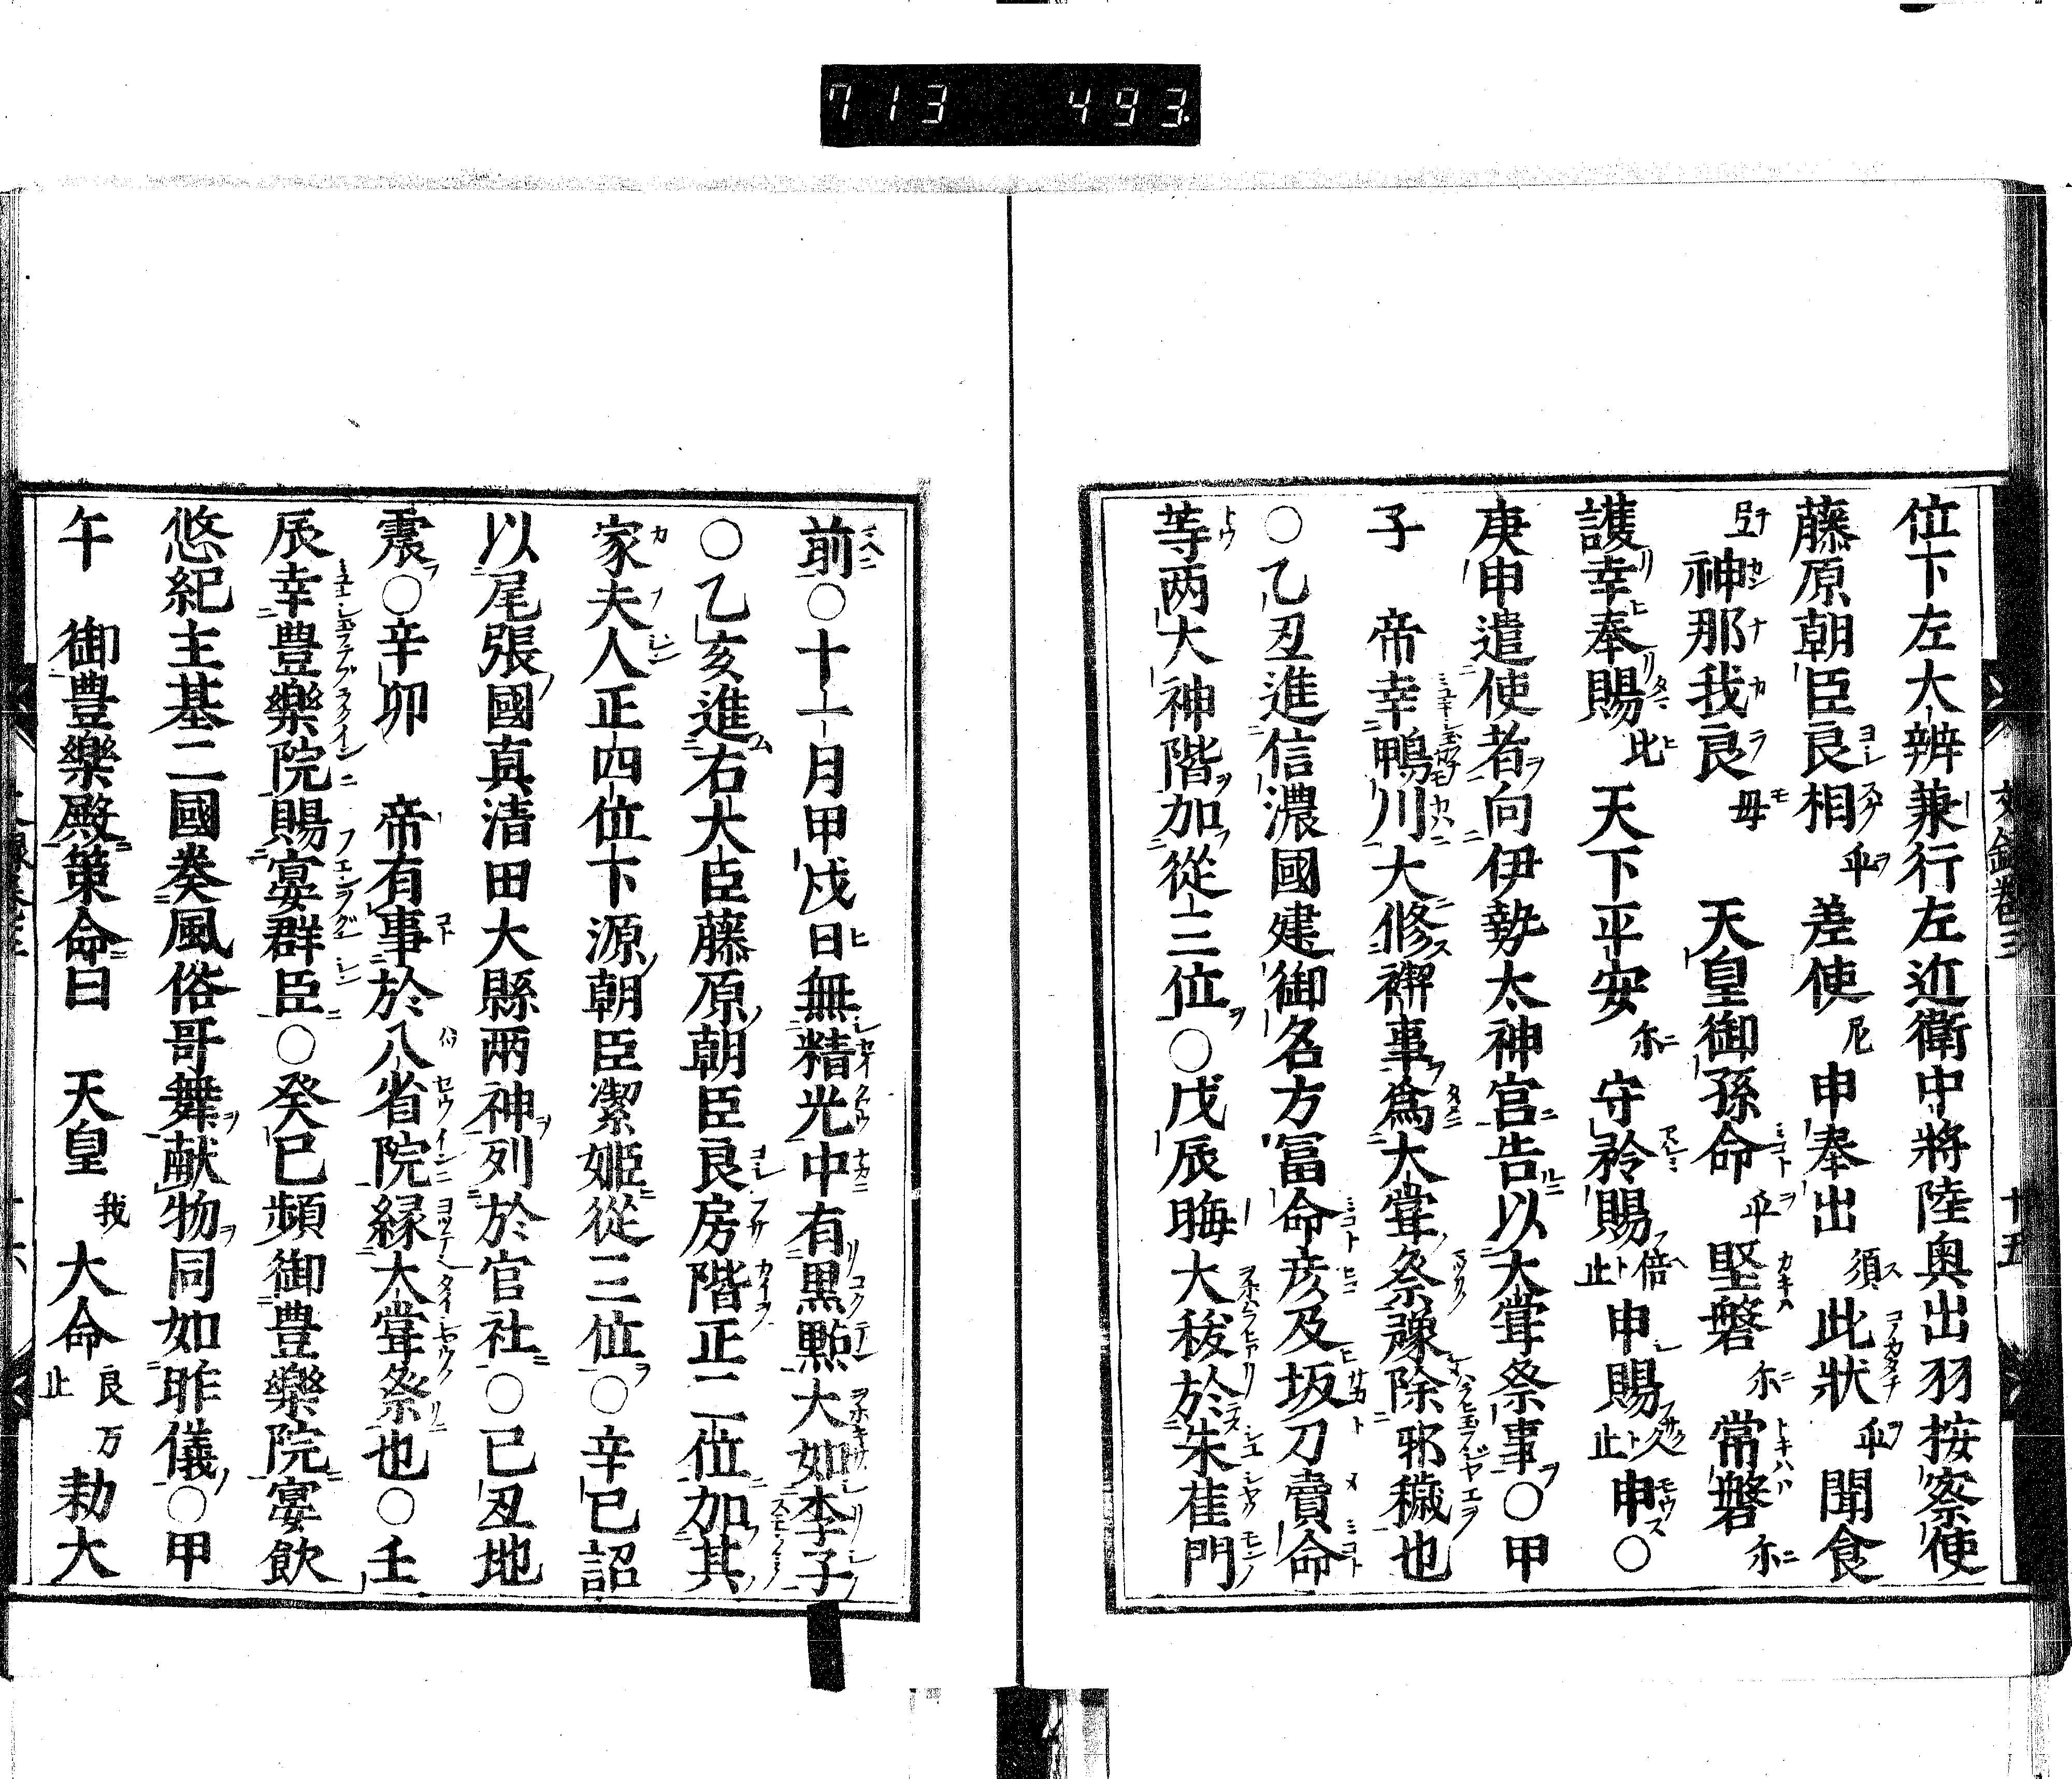 713 493
文録卷三 十五
位下左大辨兼行左近衛中將陸奥出羽按察使
藤原朝臣良相乎差使尼申奉出須此狀乎聞食
弖神那我良毋天皇御孫命乎堅磐尓常磐尓
護幸奉賜比天下平安尓守矜賜倍止申賜久止申○
庚申遣使者向伊勢太神宮告以大甞祭事○甲
子 帝幸鴨川大修禊事爲大甞祭豫除邪穢也
○乙丑進信濃國建御名方冨命彦及坂刀賣命
等两大神階加從三位○戊辰晦大秡於朱雀門
前○十一月甲戌日無精光中有黒點大如李子
○乙亥進右大臣藤原朝臣良房階正二位加其
家夫人正四位下源朝臣潔姫從三位○辛巳詔
以尾張國真清田大縣兩神列於官社○己丑地
震○辛卯 帝有事於八省院縁大甞祭也○壬
辰幸豊樂院賜宴群臣○癸巳頻御豊樂院宴飲
悠紀主基二國奏風俗哥舞献物同如昨儀○甲
午 御豊樂殿策命曰 天皇我大命良万止勅大